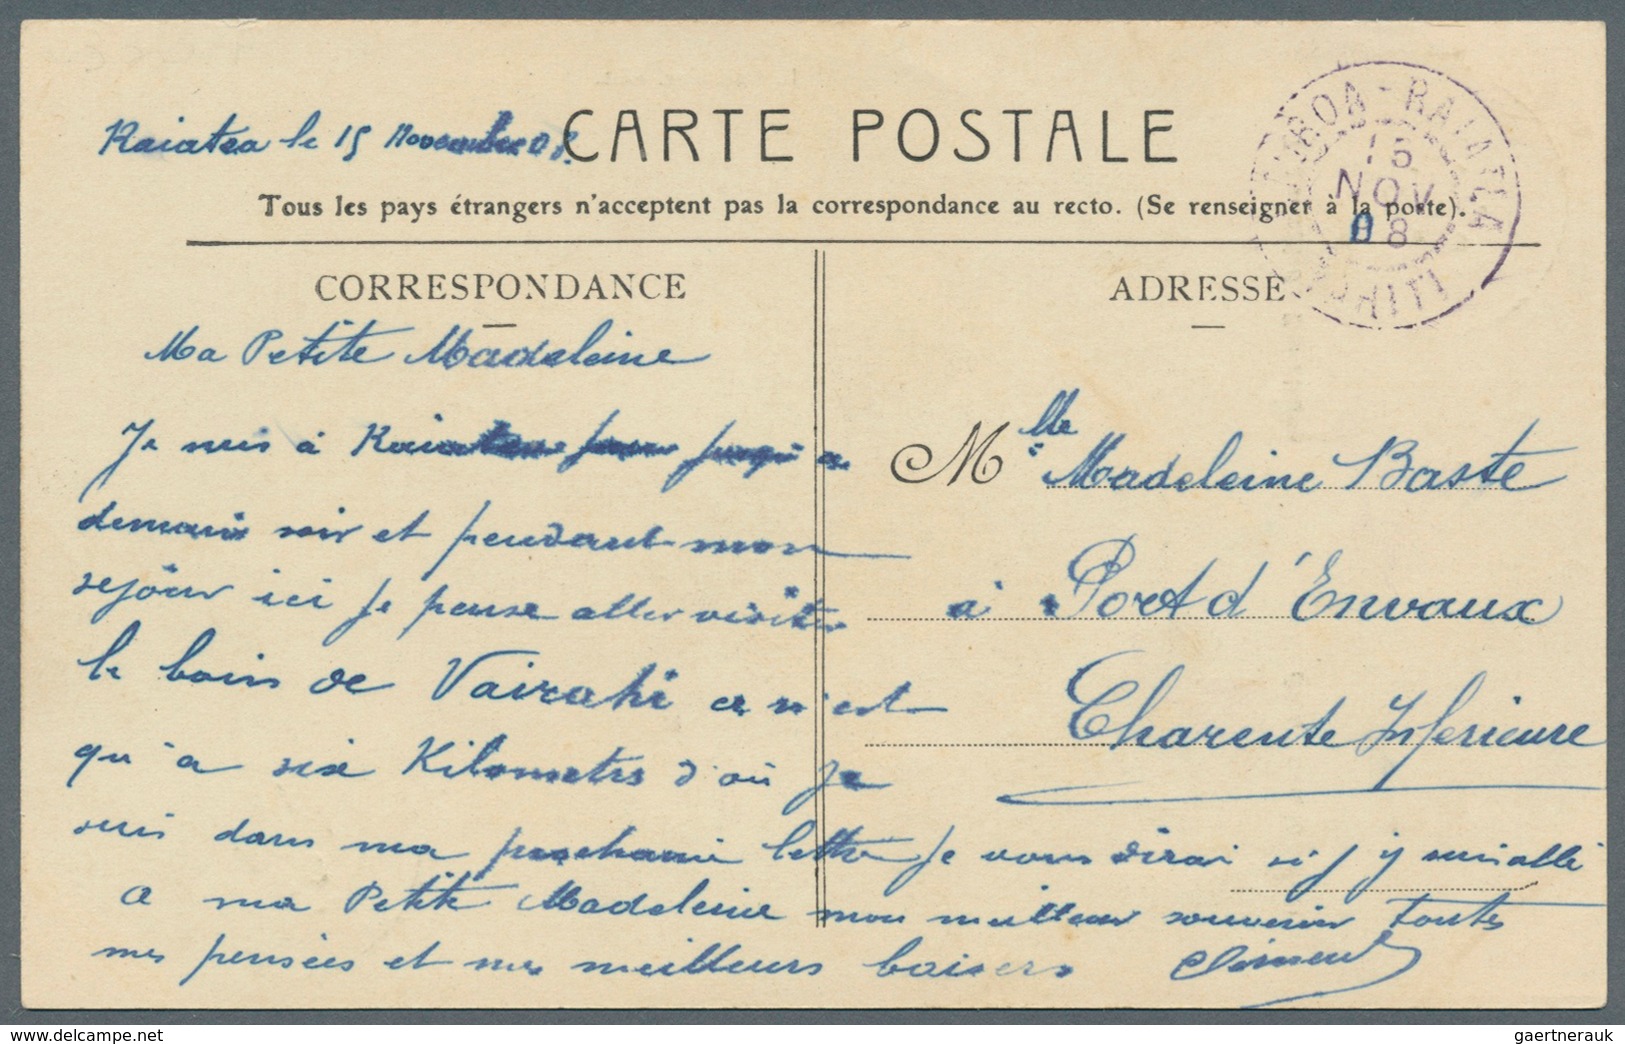 Raiatea le 15 Novembre 08.
CARTE POSTALE
Tous les pays étrangers n'acceptent pas la correspondance au recto. (Se renseigner à la poste).
15
NOV
08
CORRESPONDANCE
ADRESSE
Ma Petite Madeleine
Je suis à Raiatea pour jusqu'a
demain soir et pendant mon
sejour ici je pense aller visiter
le bain de Vairahi ce n'est
qu'a six Kilometrs d'où je
suis dans ma prochaine lettre je vous dirai si j y suis allé
a ma Petite Madeleine mon meilleur souvenir toutes
mes pensées et mes meilleurs baisers Clément
Mlle Madeleine Baste
à Port d'Envaux
Charente Inferieure
gaertnerauk @ delcampe.net